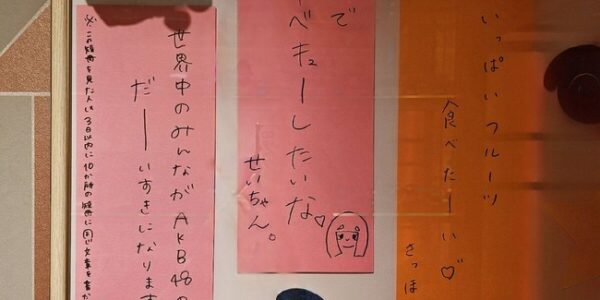 いっぱいフルーツ
食べたーい♡
さっほ
で
ベキューしたいな♡
せいちゃん。
世界中のみんながAKB48の
だーいすきになります
※この短冊を見た人は3日以内に10か所の短冊に同じ文章を書か